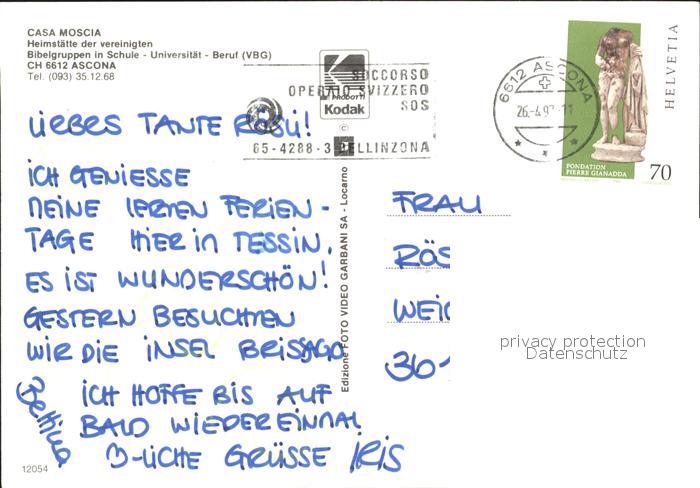 CASA MOSCIA
Heimstätte der vereinigten
Bibelgruppen in Schule - Universität - Beruf (VBG)
CH 6612 ASCONA
Tel. (093) 35.12.68
K
PRODOTTI
Kodak
©
SOCCORSO
OPERAIO SVIZZERO
SOS
65-4288-3 BELLINZONA
6612 ASCONA
26.-4.97-11
HELVETIA
FONDATION
PIERRE GIANADDA
70
LIEBES TANTE RÖSLI!
ICH GENIESSE
MEINE LETZTEN FERIEN-
TAGE HIER IN TESSIN.
ES IST WUNDERSCHÖN!
GESTERN BESUCHTEN
WIR DIE INSEL BRISSAGO
ICH HOFFE BIS AUF
BALD WIEDEREINMAL
3-LICHE GRÜSSE IRIS
Edizione FOTO VIDEO GARBANI SA - Locarno
FRAU
RÖS
WEI
36
privacy protection
Datenschutz
12054